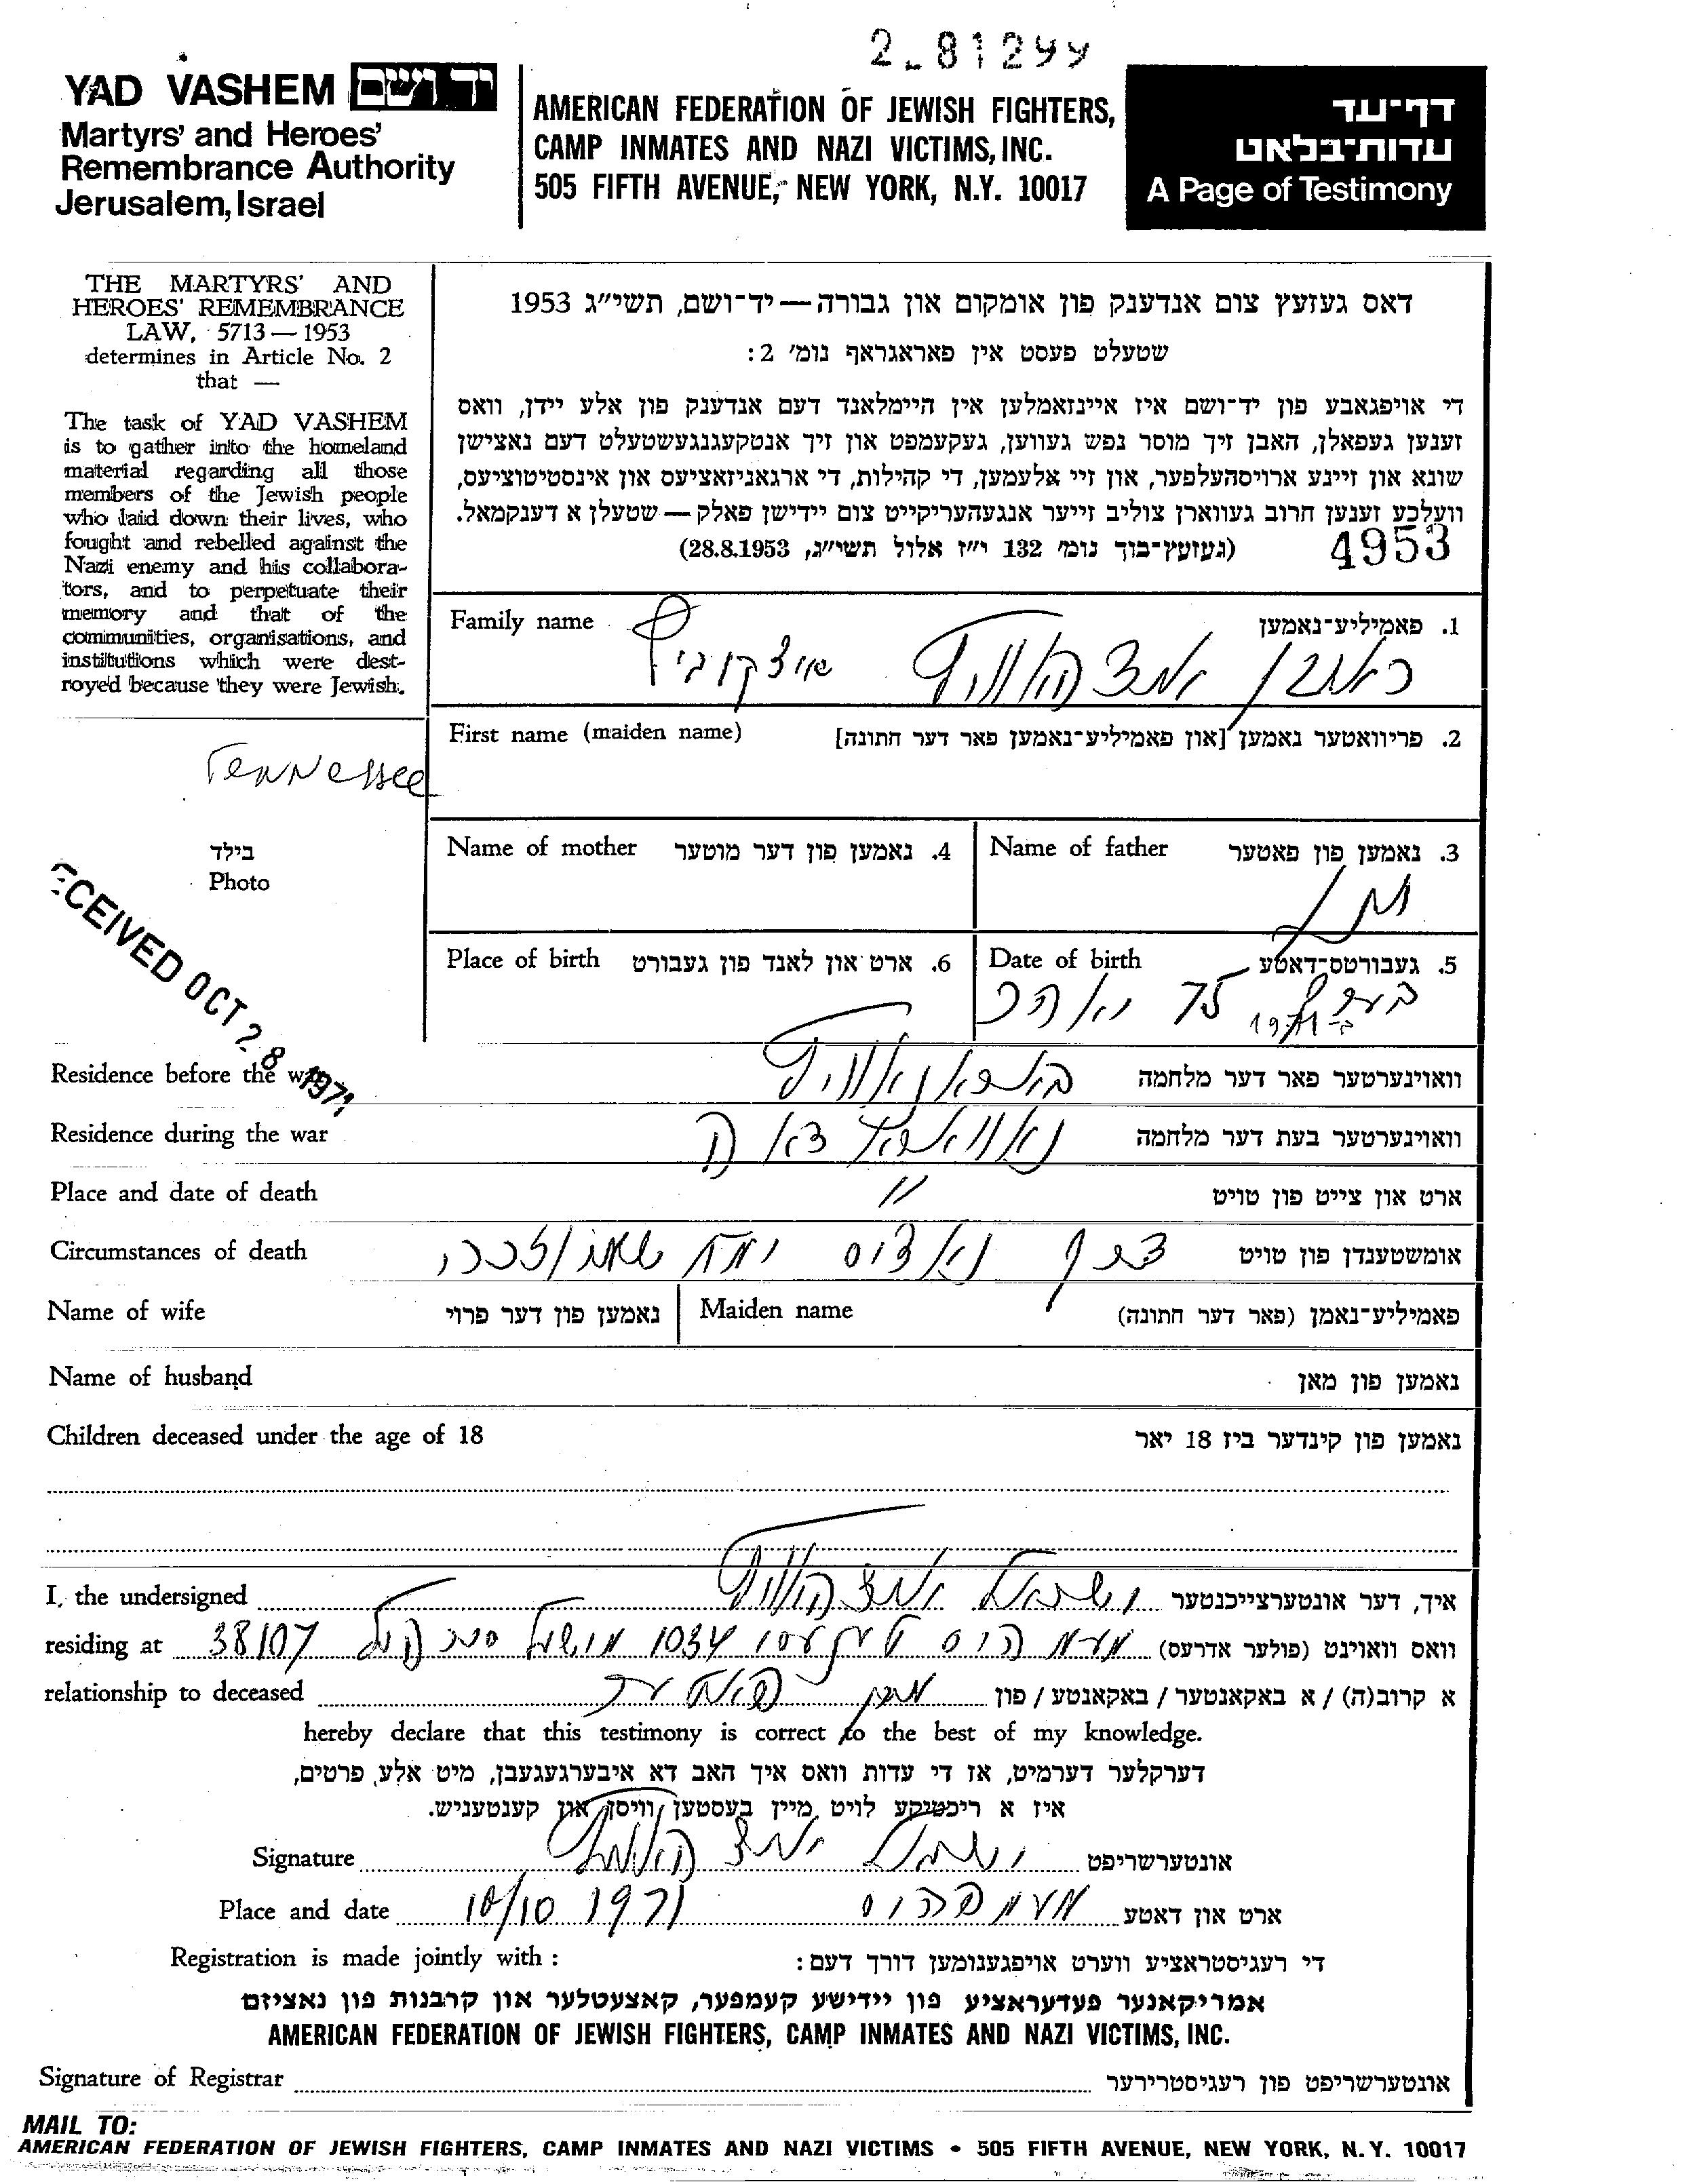 2-81299
YAD VASHEM יד ושם
Martyrs' and Heroes'
Remembrance Authority
Jerusalem, Israel
AMERICAN FEDERATION OF JEWISH FIGHTERS,
CAMP INMATES AND NAZI VICTIMS, INC.
505 FIFTH AVENUE, NEW YORK, N.Y. 10017
דף-עד
עדות-בלאט
A Page of Testimony
THE MARTYRS' AND
HEROES' REMEMBRANCE
LAW, 5713 — 1953
determines in Article No. 2
that —
The task of YAD VASHEM
is to gather into the homeland
material regarding all those
members of the Jewish people
who laid down their lives, who
fought and rebelled against the
Nazi enemy and his collabora-
tors, and to perpetuate their
memory and that of the
communities, organisations, and
institutions which were dest-
royed because they were Jewish.
דאס געזעץ צום אנדענק פון אומקום און גבורה — יד-ושם, תשי"ג 1953
שטעלט פעסט אין פאראגראף נומ' 2:
די אויפגאבע פון יד-ושם איז איינזאמלען אין היימלאנד דעם אנדענק פון אלע יידן, וואס
זענען געפאלן, האבן זיך מוסר נפש געווען, געקעמפט און זיך אנטקעגנגעשטעלט דעם נאצישן
שונא און זיינע ארויסהעלפער, און זיי אלעמען, די קהילות, די ארגאניזאציעס און אינסטיטוציעס,
וועלכע זענען חרוב געווארן צוליב זייער אנגעהעריקייט צום יידישן פאלק — שטעלן א דענקמאל.
(געזעץ-בוך נומ' 132 י"ז אלול תשי"ג, 28.8.1953)
4953
Family name
1. פאמיליע-נאמען
איצקוביץ
First name (maiden name)
2. פריוואטער נאמען [און פאמיליע-נאמען פאר דער חתונה]
Tennessee
בילד
Photo
RECEIVED OCT 28 1971
Name of mother 4. נאמען פון דער מוטער
Name of father 3. נאמען פון פאטער
Place of birth 6. ארט און לאנד פון געבורט
Date of birth 5. געבורטס-דאטע
75
ב-1971
Residence before the war וואוינערטער פאר דער מלחמה
Residence during the war וואוינערטער בעת דער מלחמה
Place and date of death " ארט און צייט פון טויט
Circumstances of death אומשטענדן פון טויט
Name of wife נאמען פון דער פרוי
Maiden name פאמיליע-נאמן (פאר דער חתונה)
Name of husband נאמען פון מאן
Children deceased under the age of 18 נאמען פון קינדער ביז 18 יאר
I, the undersigned איך, דער אונטערצייכנטער ישראל
residing at וואס וואוינט (פולער אדרעס) 1034 38107
relationship to deceased א קרוב(ה) / א באקאנטער / באקאנטע / פון
hereby declare that this testimony is correct to the best of my knowledge.
דערקלער דערמיט, אז די עדות וואס איך האב דא איבערגעגעבן, מיט אלע פרטים,
איז א ריכטיקע לויט מיין בעסטען וויסן און קענטעניש.
Signature אונטערשריפט ישראל
Place and date ארט און דאטע מעמפהיס 10/10 1971
Registration is made jointly with : די רעגיסטראציע ווערט אויפגענומען דורך דעם:
אמריקאנער פעדעראציע פון יידישע קעמפער, קאצעטלער און קרבנות פון נאציזם
AMERICAN FEDERATION OF JEWISH FIGHTERS, CAMP INMATES AND NAZI VICTIMS, INC.
Signature of Registrar אונטערשריפט פון רעגיסטרירער
MAIL TO:
AMERICAN FEDERATION OF JEWISH FIGHTERS, CAMP INMATES AND NAZI VICTIMS • 505 FIFTH AVENUE, NEW YORK, N.Y. 10017